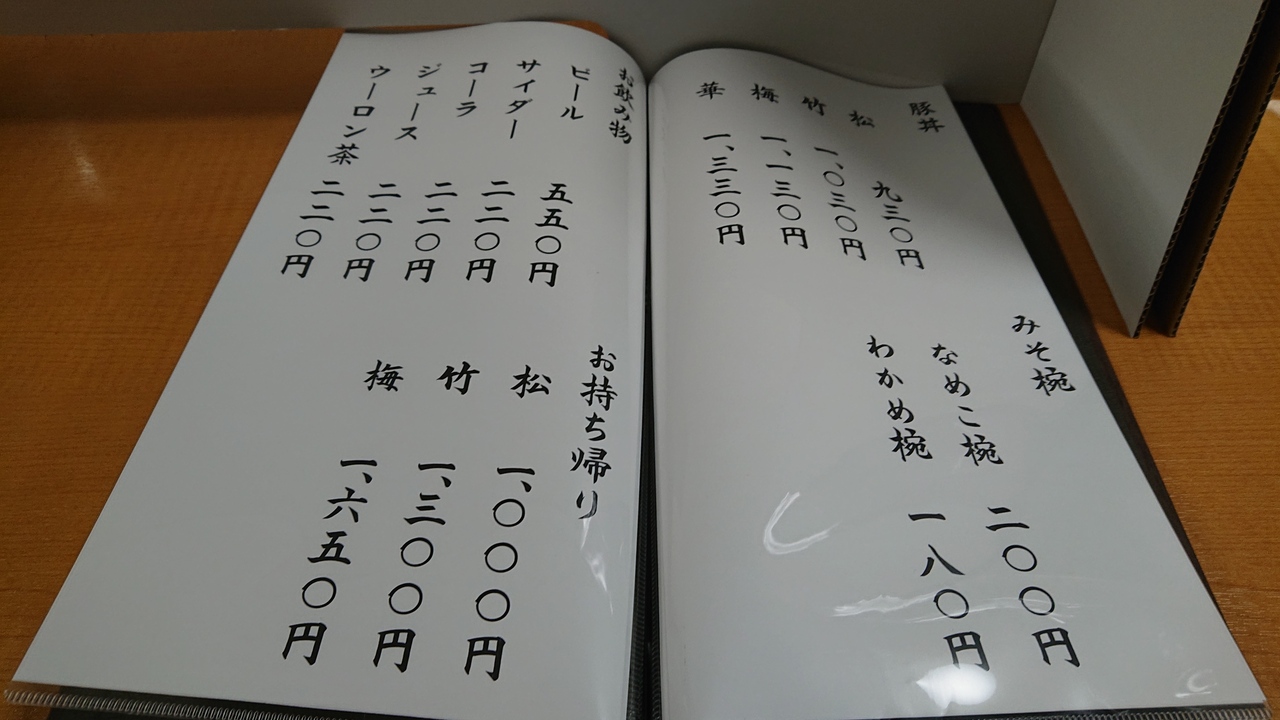 豚丼
松 九三〇円
竹 一、〇三〇円
梅 一、一三〇円
華 一、三三〇円
みそ椀
なめこ椀 二〇〇円
わかめ椀 一八〇円
お飲み物
ビール 五五〇円
サイダー 二二〇円
コーラ 二二〇円
ジュース 二二〇円
ウーロン茶 二二〇円
お持ち帰り
松 一、〇〇〇円
竹 一、三〇〇円
梅 一、六五〇円